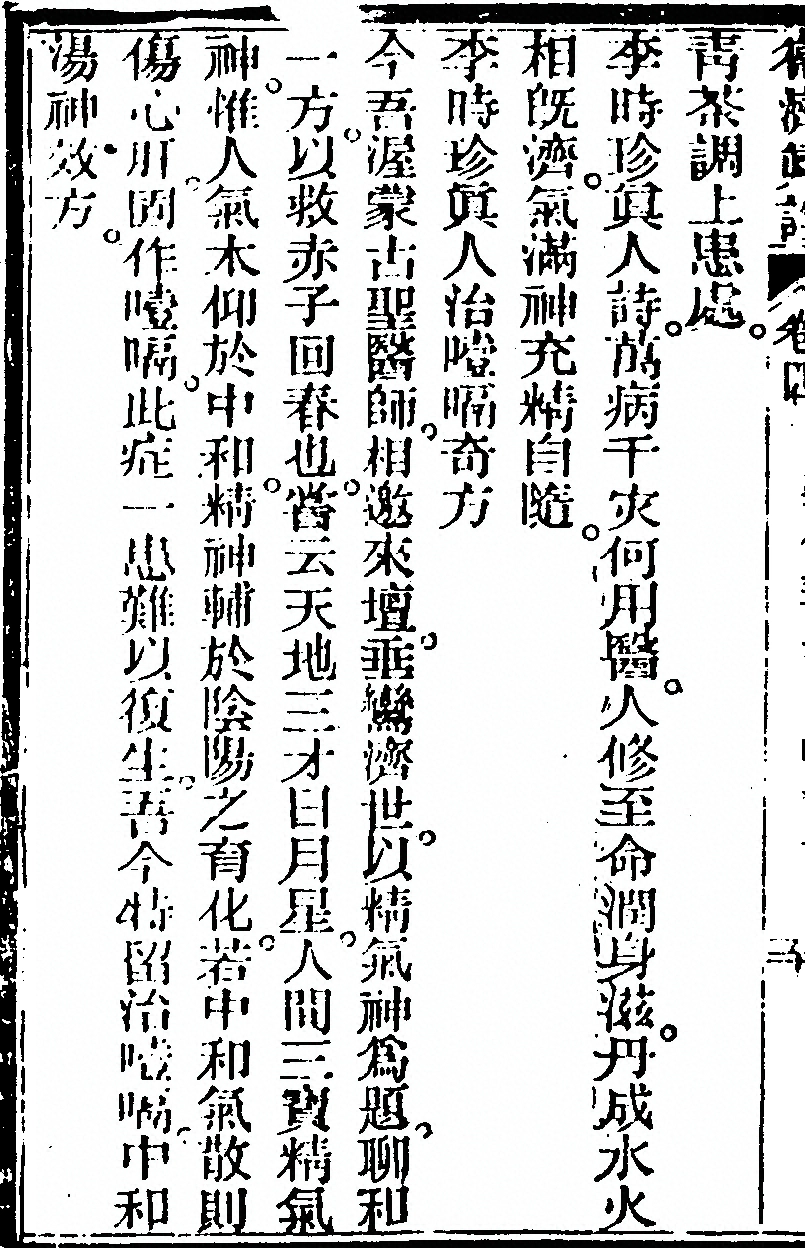 卷四
青茶調上患處。
李時珍眞人詩。萬病千灾何用醫。人修至命潤身滋。丹成水火
相既濟。氣滿神充精自隨。
李時珍眞人治噎嗝奇方
今吾渥蒙古聖醫師。相邀來壇。垂鸞濟世。以精氣神爲題。聊和
一方。以救赤子回春也。嘗云天地三才日月星。人間三寶精氣
神。惟人氣木仰於中和。精神輔於陰陽之育化。若中和氣散則
傷心肝。固作噎嗝。此症一患難以復生。吾今特留治噎嗝。中和
湯神效方。